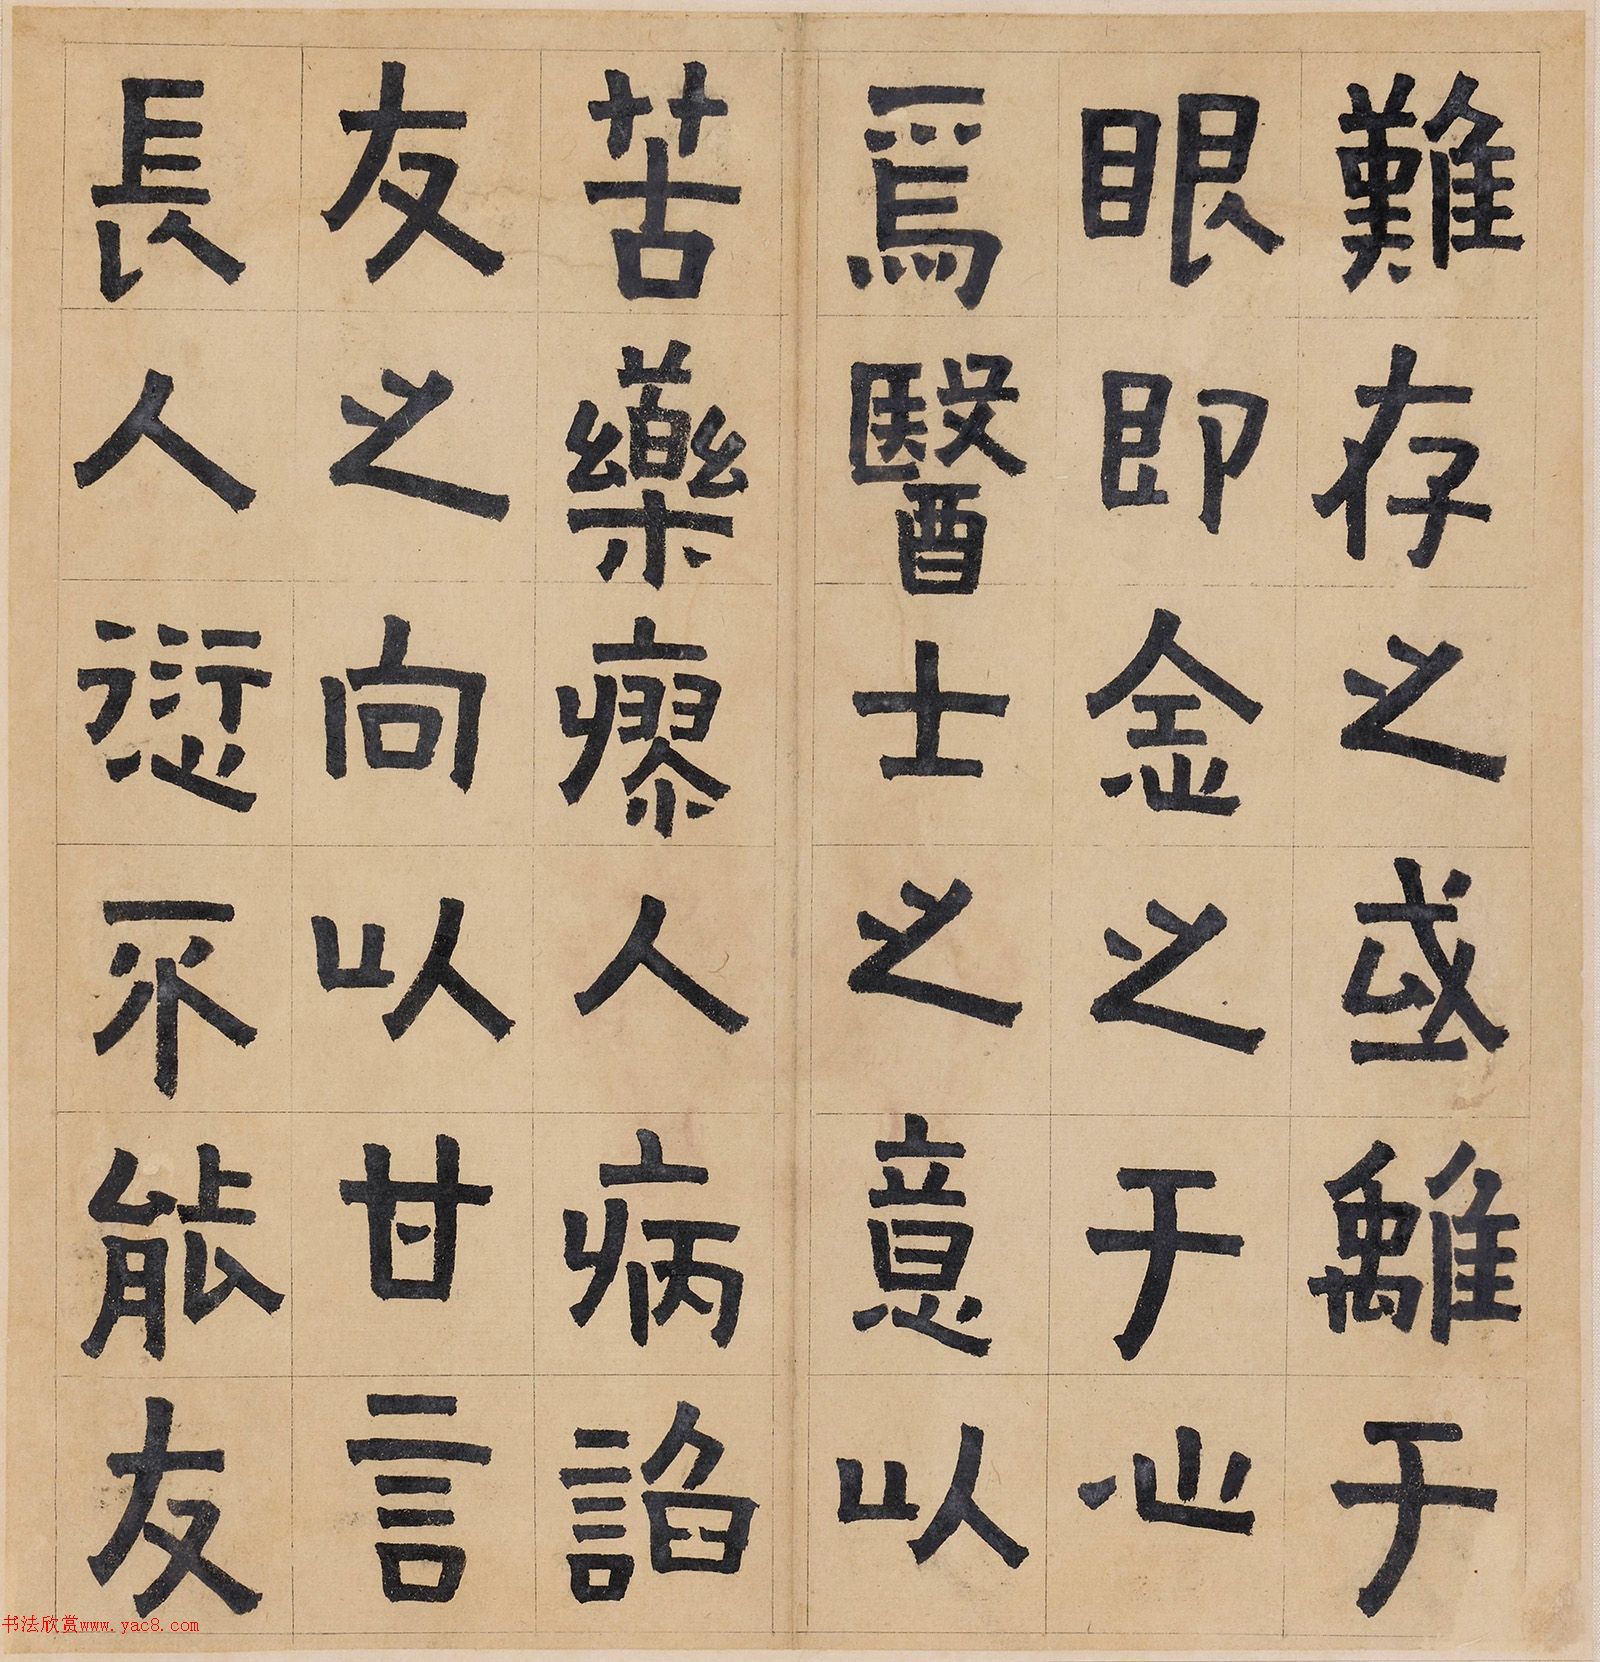 難存之或離于
眼即念之于心
爲醫士之意以
苦藥瘳人病諂
友之向以甘言
長人愆不能友
书法欣赏www.yac8.com